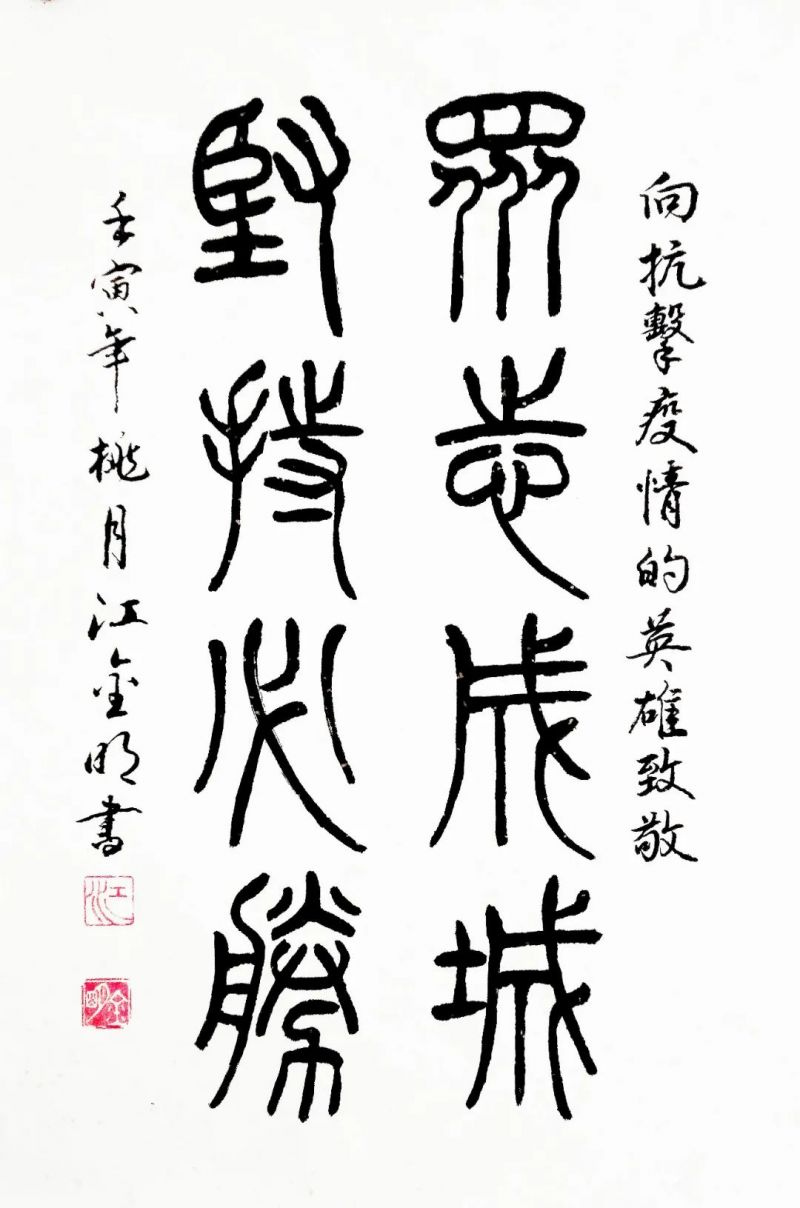 向抗擊疫情的英雄致敬
眾志成城
堅持必勝
壬寅年桃月江金明書
江
金明